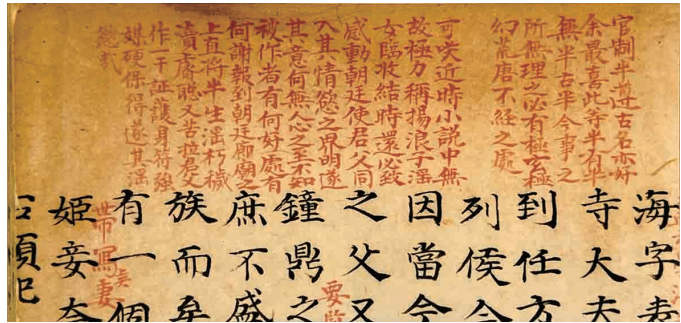 官制半遵古名亦好
余最喜此等半有半
無半古半今事之
所無理之必有極玄極
幻荒唐不經之處
可咲近時小説中無
故極力稱揚浪子淫
女臨收結時還必致
感動朝廷使君父同
入其情慾之界明遂
其意何無人心之至不知
被作者有何好處有
何謝報到朝廷廊廟之
上直將半生淫朽穢
瀆睿聰又苦拉君父
作一干証護身符強
媒硬保得遂其淫
慾哉
海字表
寺大夫
到任方
列侯今
因當今
之父又
要
鐘鼎之
庶不盛
族而矣
有一個
帶寫妻
姬妾奈
石頭記